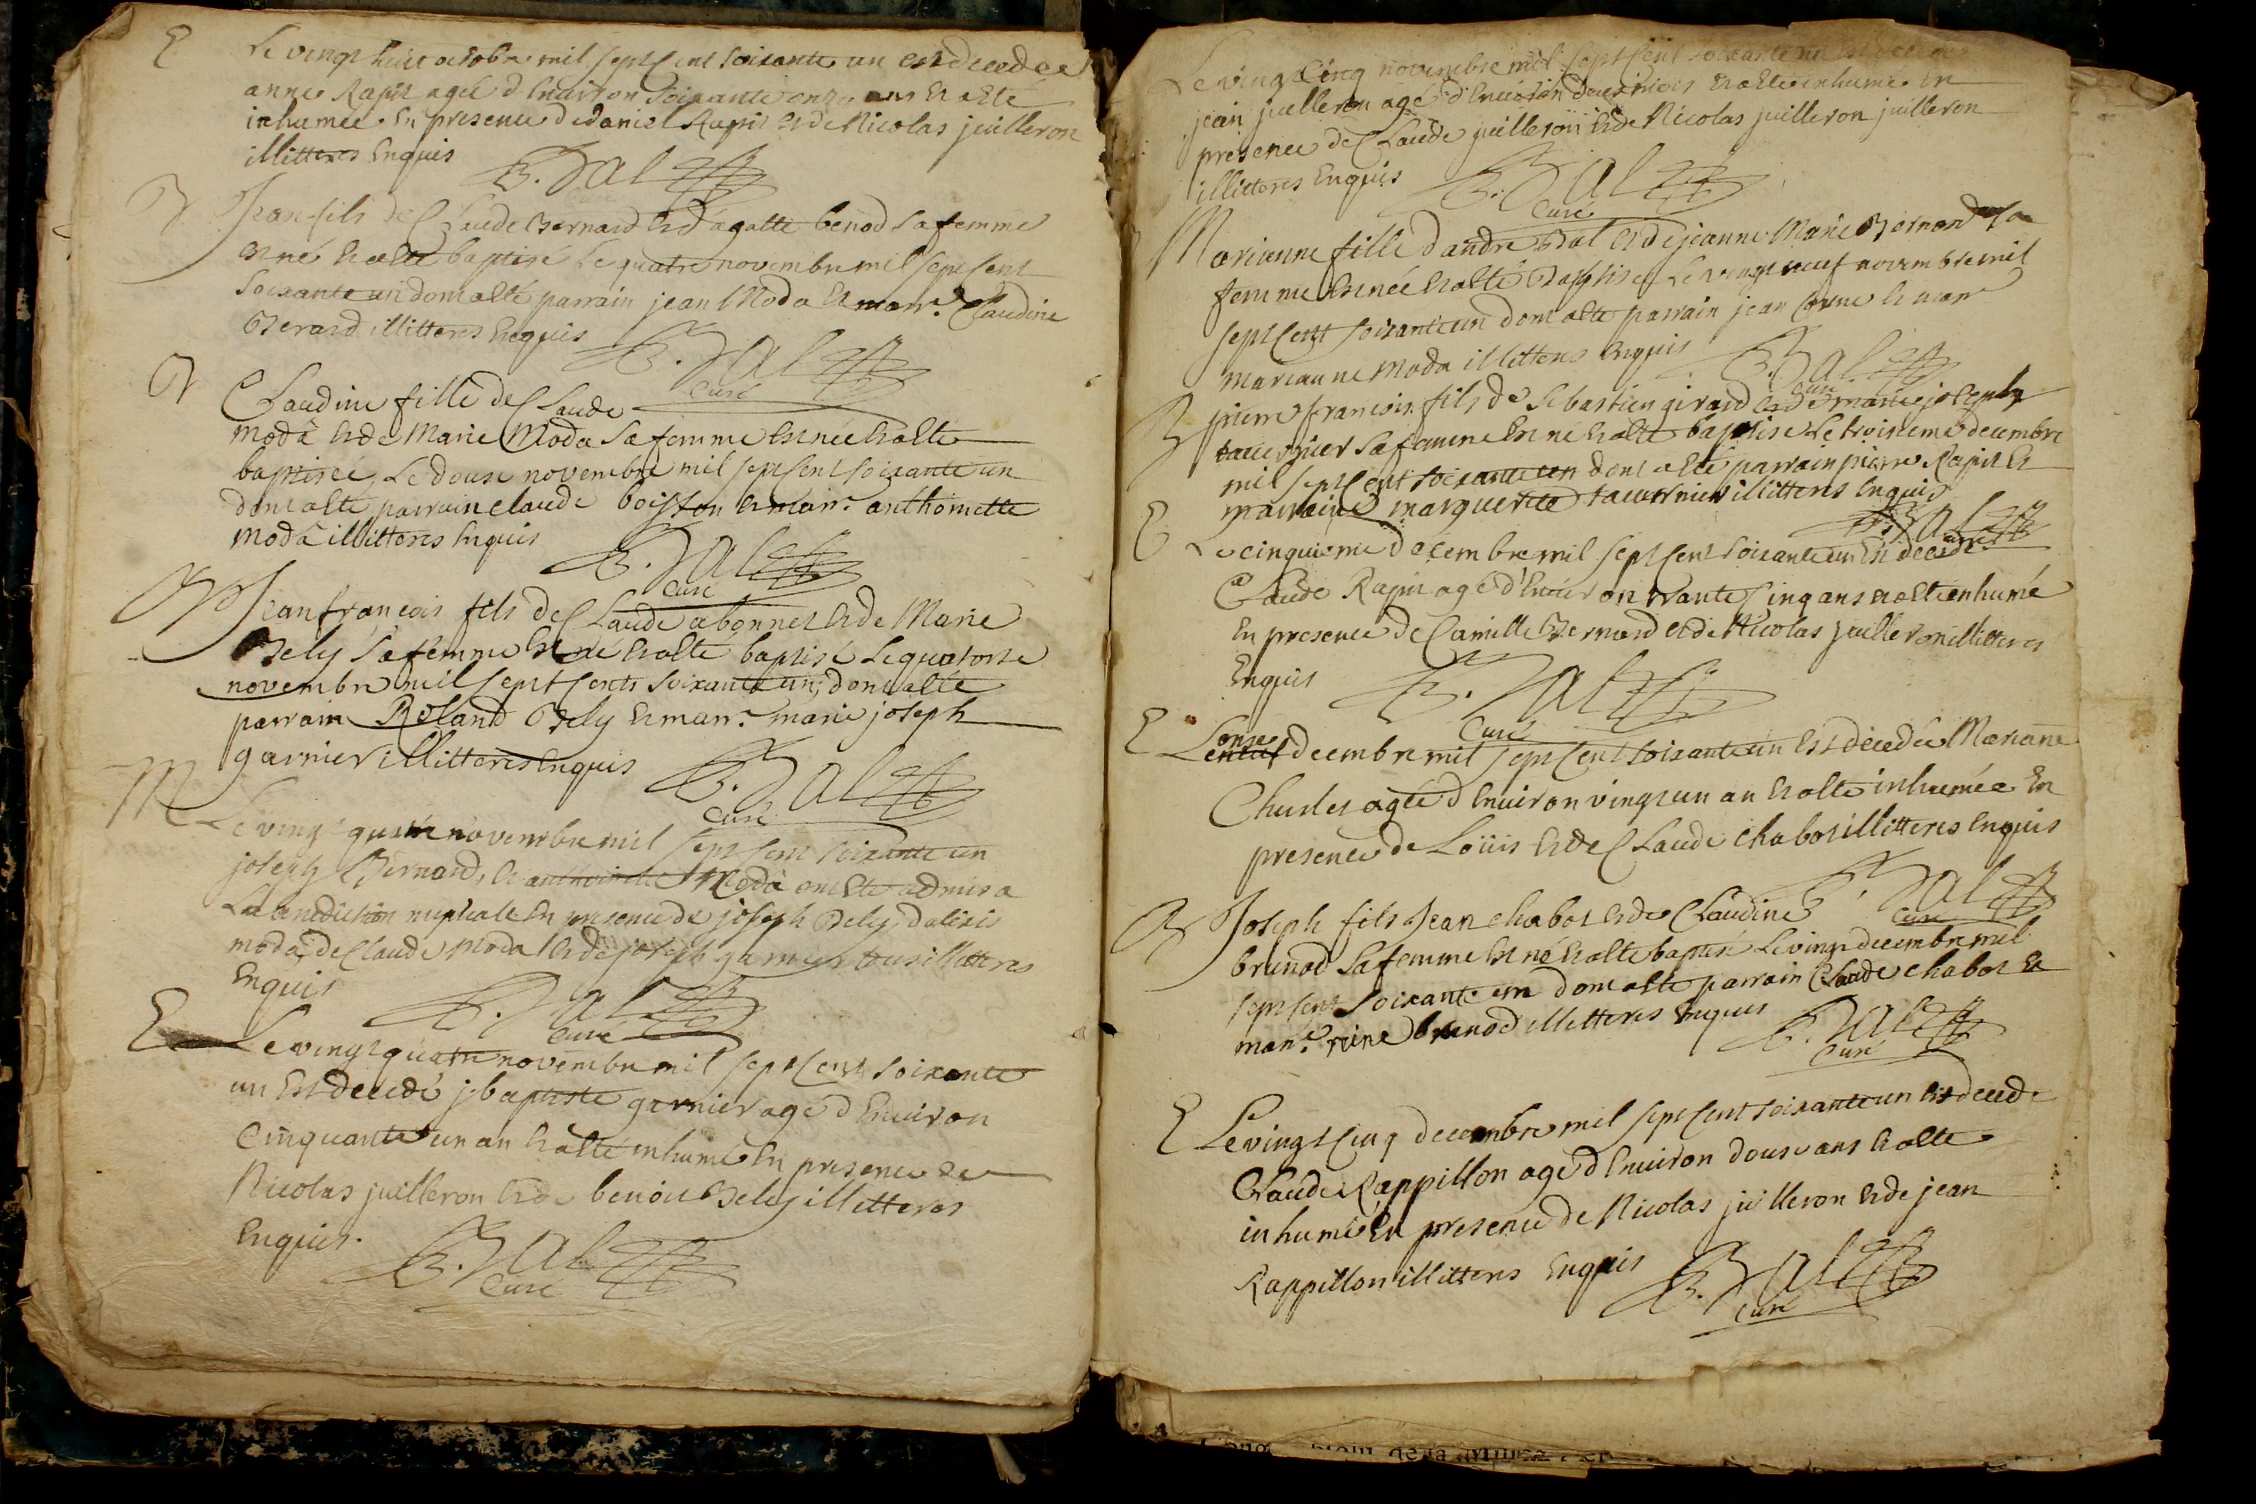 E
Le vingt huit octobre mil sept Cent soixante un est decedee
anne Rapit agée d Environ soixante onze ans Et a Eté
inhumée En presence de daniel Rapit et de Nicolas juilleron
illitteres Enquis
B. Bal
B
Jean fils de Claude Bernard Et d'agatte benod sa femme
est né Et a Eté baptisé Le quatre novembre mil sept Cent
soixante un dont a eté parrain jean Moda Et marr.e Claudine
Berard illitteres Enquis
B. Bal
Curé
B
Claudine fille de Claude
modà Et de Marie Moda sa femme Est née Et a ete
baptiseé Le douse novembre mil sept Cent soixante un
dont a eté parrain claude boisson Et marr.e anthoinette
modà illitteres Enquis
B. Bal
Curé
B
Jean françois fils de Claude abonnel Et de Marie
Bely sa femme Est né Et a eté baptisé Le quatorse
novembre mil sept Cents soixante un, dont a eté
parrain Roland Bely Et marr.e marie joseph
garnier illitteres Enquis
B. Bal
Curé
M
Le vingt quatre novembre mil sept Cent soixante un
joseph Bernard, Et anthoinette Modà ont Eté admis a
La benediction nuptiale En presence de joseph Bely, d alexis
moda, de Claude moda Et de joseph garnier tous illitteres
Enquis
B. Bal
Curé
E
Le vingt quatre novembre mil sept Cent soixante
un Est decedé j baptiste garnier agé d Environ
Cinquante un an Et a eté inhumé En presence de
Nicolas juilleron Et de benoit Bely illitteres
Enquis.
B. Bal
Curé
Le vingt Cinq novembre mil sept Cent soixante un Est decedé
jean juilleron agé d'Environ deux mois Et a Eté inhumé En
presence de Claude juilleron Et de Nicolas juilleron juilleron
illitteres Enquis
B. Bal
Curé
Marianne fille d andré Bal Et de jeanne Marie Bernard sa
femme Est née Et a eté Baptisé Le vingt neuf novembre mil
sept Cent soixante un dont a eté parrain jean Et marr.e
marianne moda illitteres Enquis
B. Bal
Curé
B
pierre francois fils de sebastien girard Et de marie joseph
tavernier sa femme Est né Et a eté baptisé Le troisieme decembre
mil sept Cent soixante un dont a eté parrain pierre Rapit Et
marraine marguerite tavernier illitteres Enquis
B. Bal
curé
E
Le cinquieme decembre mil sept Cent soixante un Est decedé
Claude Rapit agé d'Environ trante Cinq ans Et a eté enhumé
En presence de Camille Bernard et de Nicolas juilleron illitteres
Enquis
B. Bal
Curé
E
L'onse
decembre mil sept Cent soixante un Est decedée Mariane
Charles ageé d Environ vingt un an Et a eté inhumée En
presence de Loüis Et de Claude chabot illitteres Enquis
B. Bal
Curé
B
Joseph fils Jean chabot Et de Claudine
brunod sa femme Est né Et a eté baptisé Le vingt decembre mil
sept Cent soixante un dont a eté parrain Claude chabot Et
marr.e reine brunod illitteres Enquis
B. Bal
Curé
E
Le vingt Cinq decembre mil sept Cent soixante un Est decedé
Claude Rappillon agé d Environ douse ans Et a eté
inhumé En presence de Nicolas juilleron Et de jean
Rappillon illitteres Enquis
B. Bal
Curé